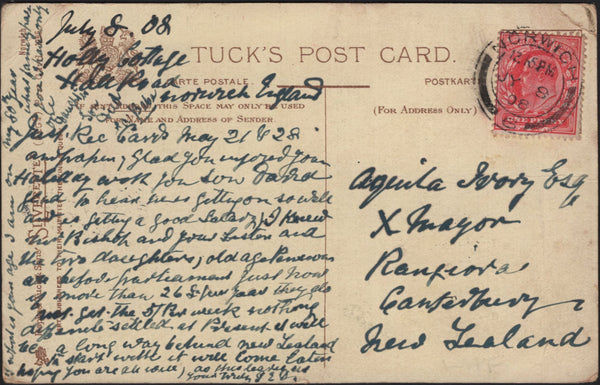 July 8. 08
Holly Cottage
Hall Road
Norwich England
TUCK'S POST CARD.
CARTE POSTALE.
POSTKARTE
THIS SPACE MAY ONLY BE USED
NAME AND ADDRESS OF SENDER.
(FOR ADDRESS ONLY)
NORWICH
ONE PENNY
Just Rec Cards May 21 & 28
and paper, Glad you enjoyed your
Holiday with you son
Glad to hear he is getting on so well
getting a good Salary, I knew
Bishop and your Sister and
the two daughters, old age Pensions
are before parliament Just now
more than 26£ per year they do
not get the 5/ per week nothing
definite settled at Present it will
be a long way behind new Zealand
start with it will come later
hoping you are all well, as this leaves us
yours truly
my 80th year
Aquila Ivory Esq
X Mayor
Rangiora
Canterbury
New Zealand